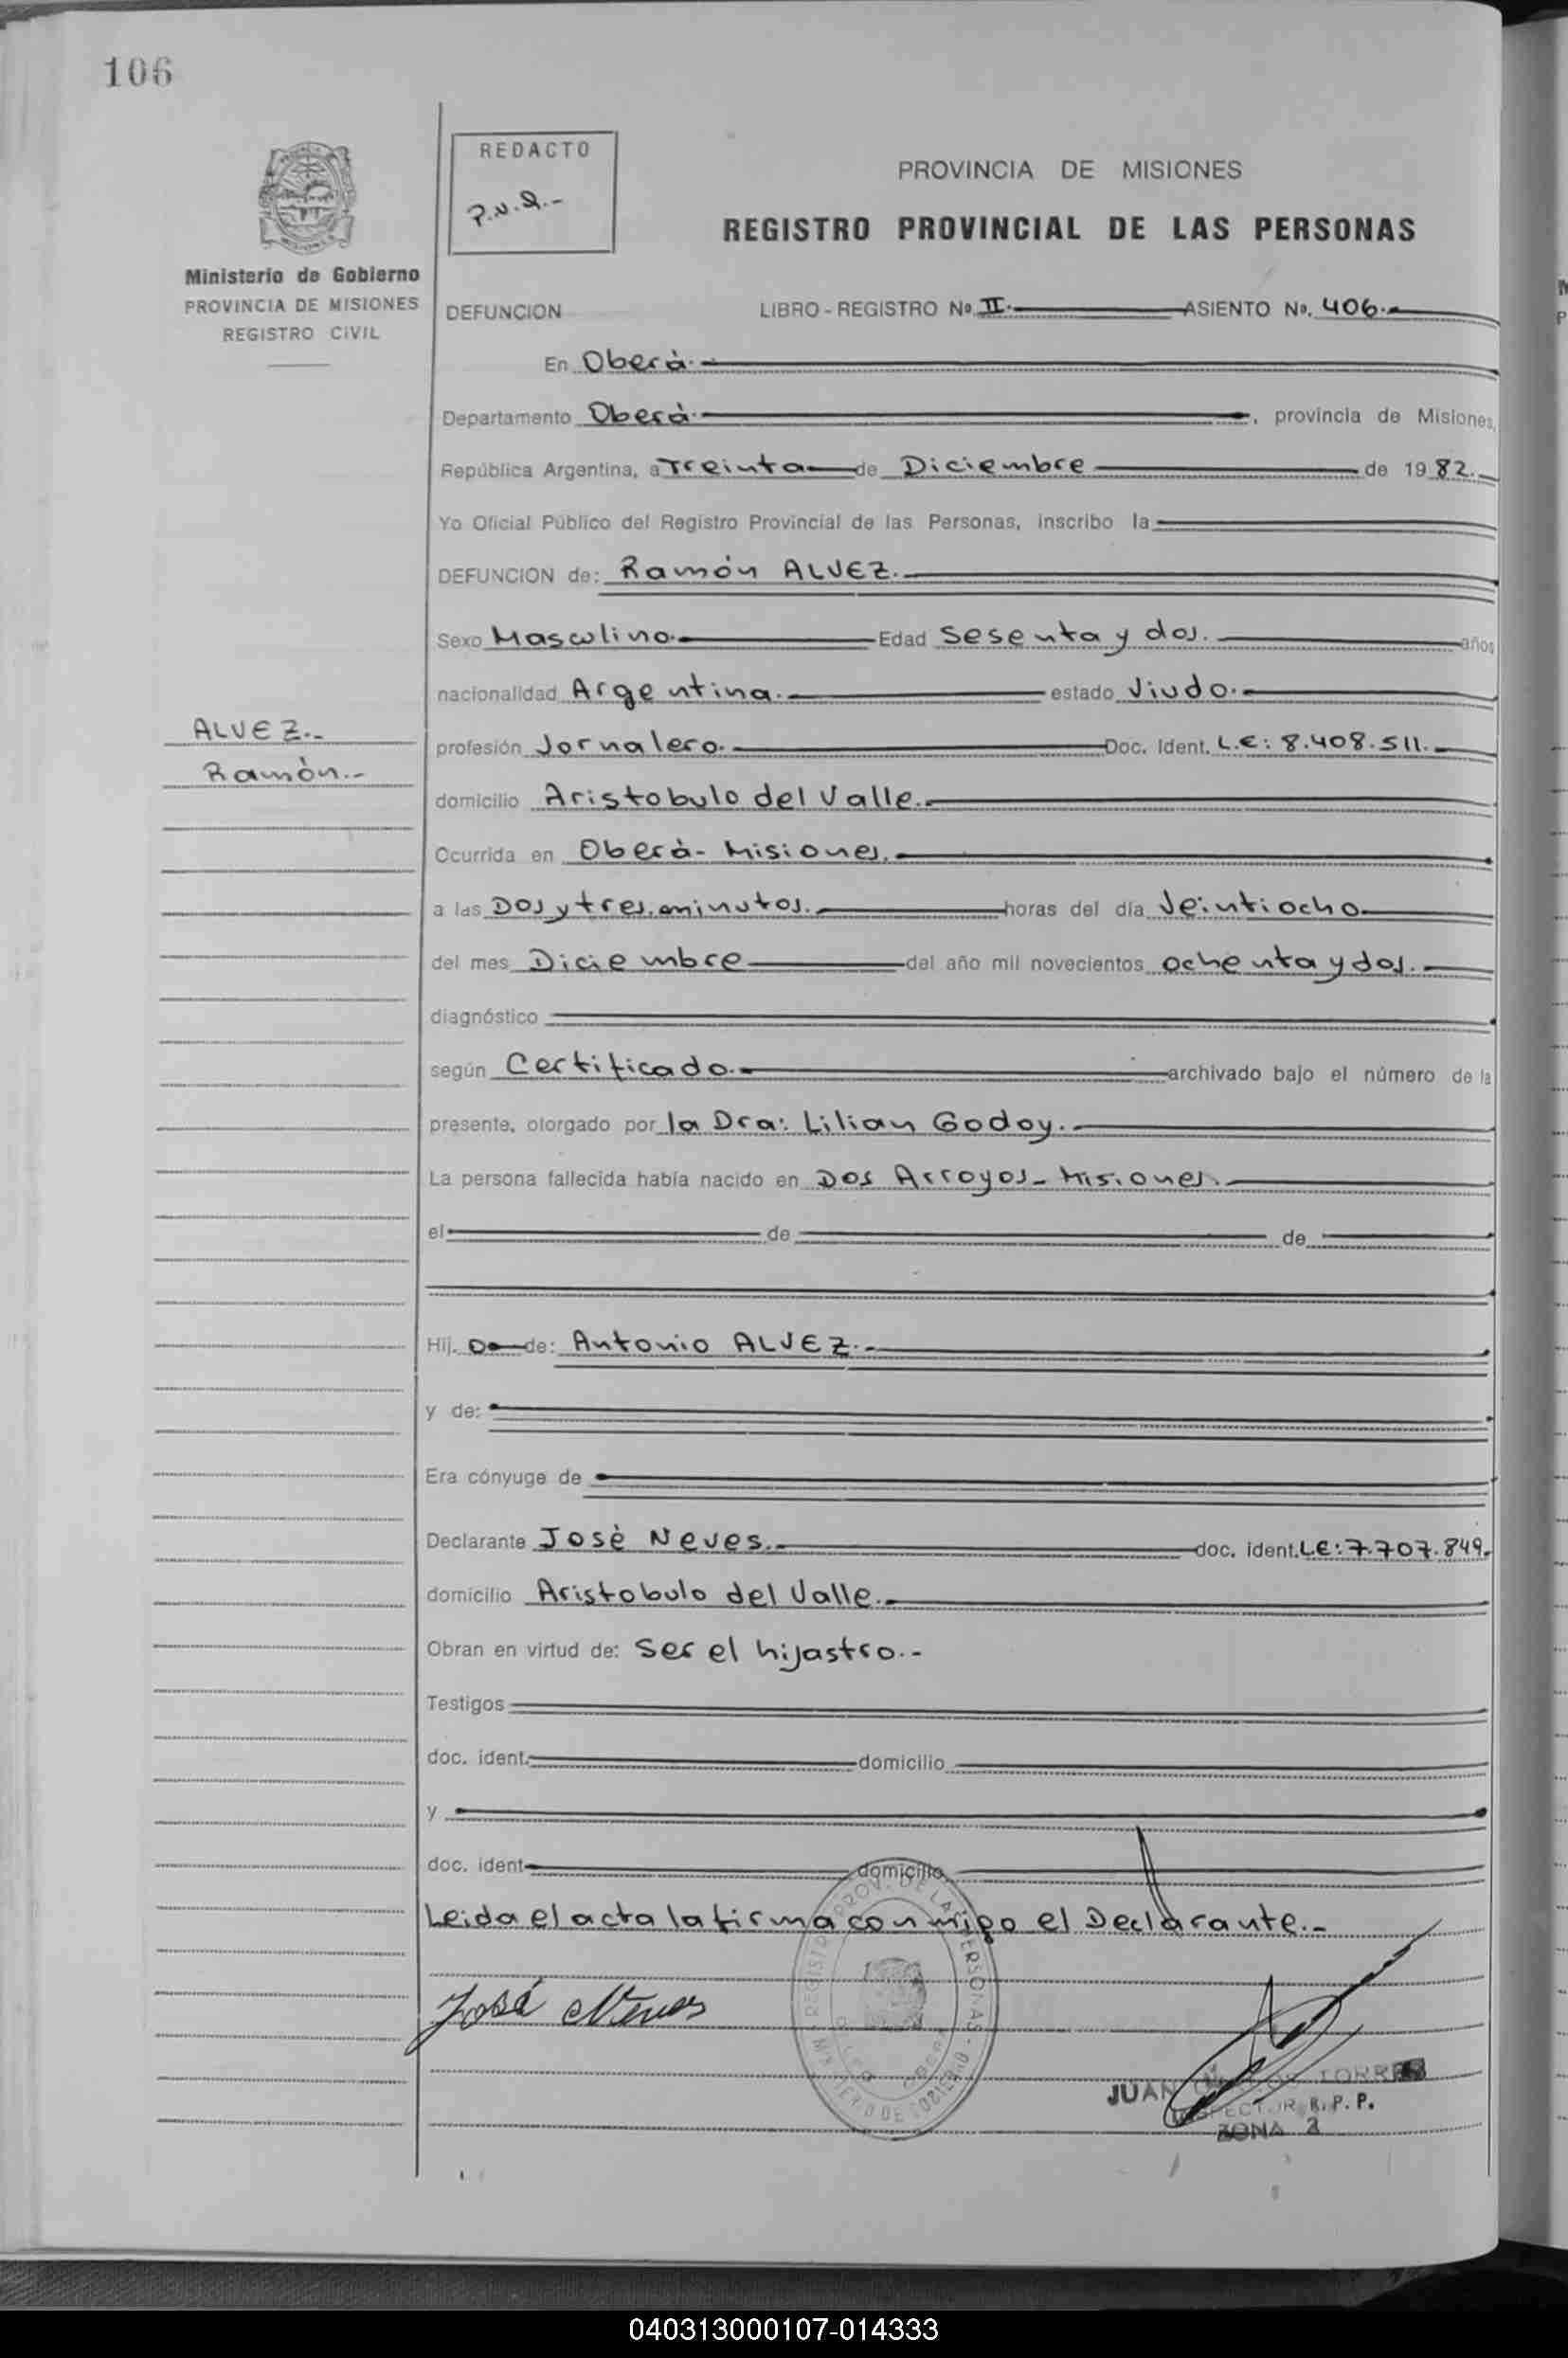 106
REDACTO
P.N.R.-
PROVINCIA DE MISIONES
REGISTRO PROVINCIAL DE LAS PERSONAS
Ministerio de Gobierno
PROVINCIA DE MISIONES
REGISTRO CIVIL
DEFUNCION LIBRO - REGISTRO No. II. ASIENTO No. 406.
En Oberà.
Departamento Oberà. , provincia de Misiones,
República Argentina, a Treinta de Diciembre de 19 82.
Yo Oficial Público del Registro Provincial de las Personas, inscribo la
DEFUNCION de: Ramón ALVEZ.
Sexo Masculino. Edad Sesenta y dos. años
nacionalidad Argentina. estado Viudo.
ALVEZ.-
Ramòn.-
profesión Jornalero. Doc. Ident. L.E: 8.408.511.
domicilio Aristobulo del Valle.
Ocurrida en Oberà- Misiones.
a las Dos y tres minutos. horas del día Veintiocho
del mes Diciembre del año mil novecientos ochenta y dos.
diagnóstico
según Certificado. archivado bajo el número de la
presente, otorgado por la Dra: Lilian Godoy.
La persona fallecida había nacido en Dos Arroyos- Misiones.
el de de
Hij. o de: Antonio ALVEZ.
y de:
Era cónyuge de
Declarante Josè Neves. doc. ident. LE: 7.707.849.
domicilio Aristobulo del Valle.
Obran en virtud de: Ser el hijastro.-
Testigos
doc. ident. domicilio
y
doc. ident domicilio
Leida el acta la firma conmigo el Declarante.-
José Neves
JUAN TORRES
INSPECTOR R. P. P.
ZONA 2
040313000107-014333